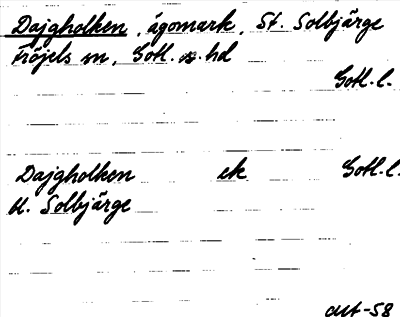 Dajgholken, ägomark, St. Solbjärge
Fröjels sn, Gotl. s. hd
Gotl. l.
Dajgholken ek Gotl. l.
st. Solbjärge
-58